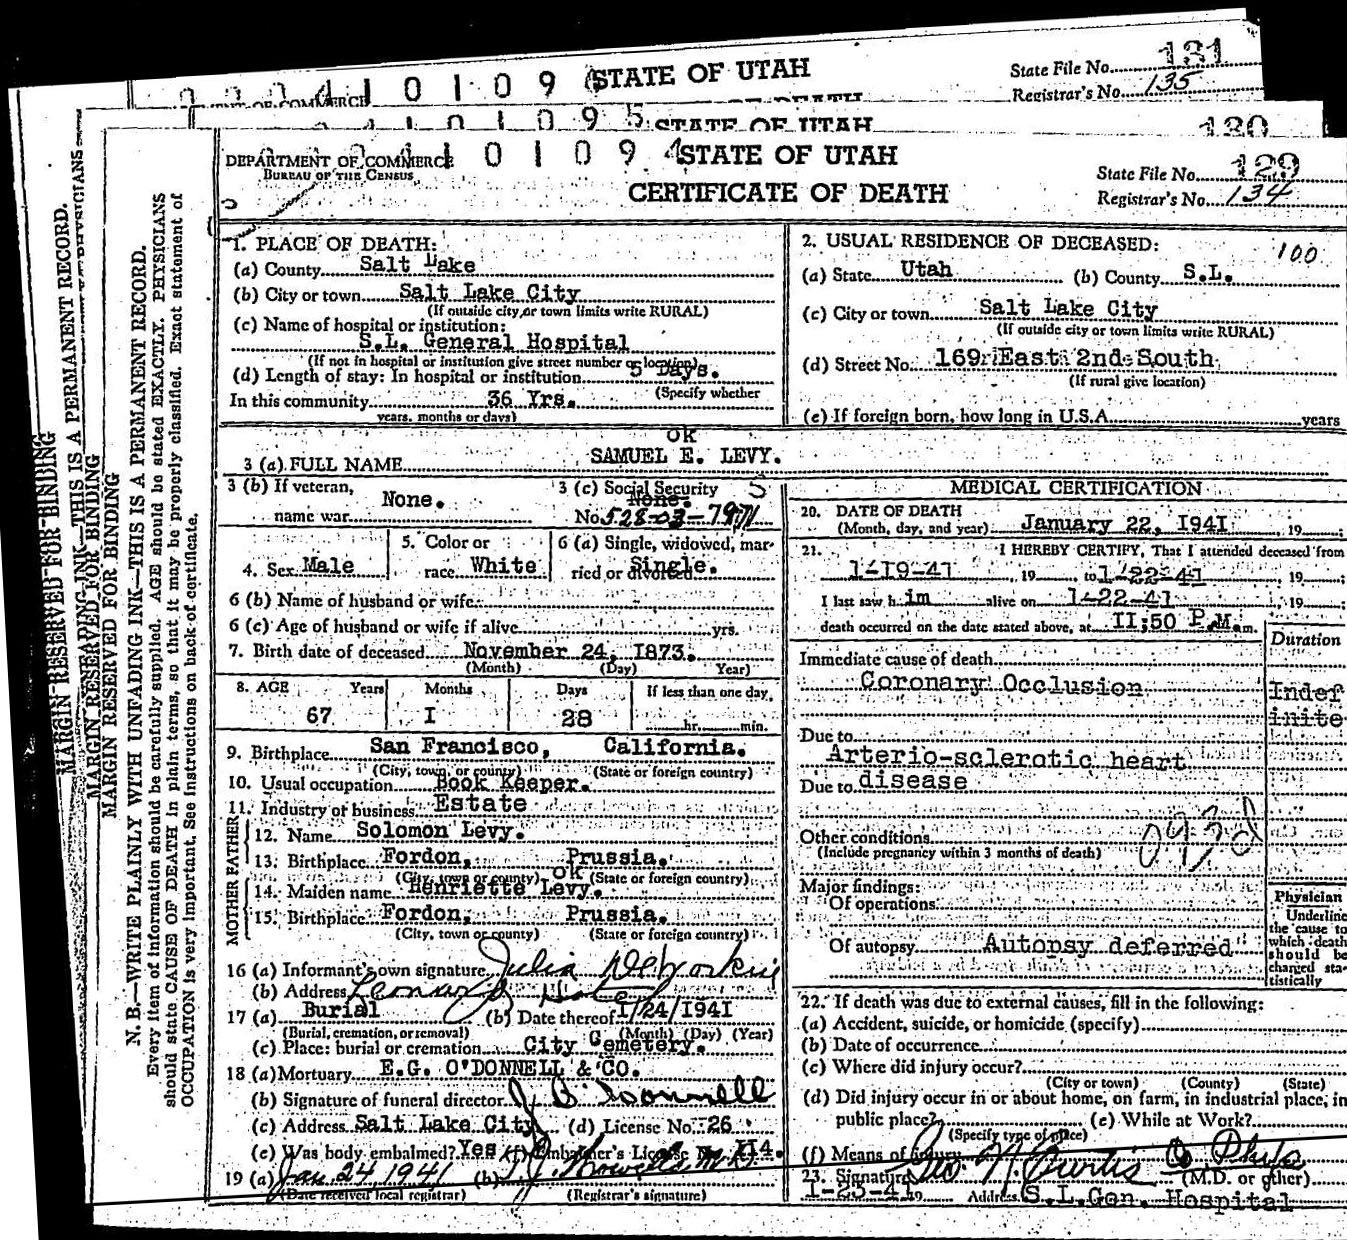 0 1 0 9 STATE OF UTAH
State File No. 131
Registrar's No. 135
0 1 0 9 5 STATE OF UTAH
130
DEPARTMENT OF COMMERCE
BUREAU OF THE CENSUS
4 1 0 1 0 9 4 STATE OF UTAH
CERTIFICATE OF DEATH
State File No. 129
Registrar's No. 134
MARGIN RESERVED FOR BINDING
N. B.—WRITE PLAINLY WITH UNFADING INK—THIS IS A PERMANENT RECORD.
Every item of information should be carefully supplied. AGE should be stated EXACTLY. PHYSICIANS
should state CAUSE OF DEATH in plain terms, so that it may be properly classified. Exact statement of
OCCUPATION is very important. See instructions on back of certificate.
1. PLACE OF DEATH:
(a) County Salt Lake
(b) City or town Salt Lake City
(If outside city or town limits write RURAL)
(c) Name of hospital or institution:
S.L. General Hospital
(If not in hospital or institution give street number or location)
(d) Length of stay: In hospital or institution 5 Days.
(Specify whether
In this community 36 Yrs.
years, months or days)
2. USUAL RESIDENCE OF DECEASED: 100
(a) State Utah (b) County S.L.
(c) City or town Salt Lake City
(If outside city or town limits write RURAL)
(d) Street No. 169 East 2nd South
(If rural give location)
(e) If foreign born, how long in U.S.A. years
OK
3 (a) FULL NAME SAMUEL E. LEVY.
3 (b) If veteran,
name war None.
3 (c) Social Security
None.
No. 528-03-7971
4. Sex Male
5. Color or
race White
6 (a) Single, widowed, mar-
ried or divorced Single.
6 (b) Name of husband or wife
6 (c) Age of husband or wife if alive yrs.
7. Birth date of deceased November 24, 1873.
(Month) (Day) Year)
8. AGE Years Months Days If less than one day
67 I 28 hr. min.
9. Birthplace San Francisco, California.
(City, town, or county) (State or foreign country)
10. Usual occupation Book Keeper.
11. Industry or business Estate
FATHER
12. Name Solomon Levy.
13. Birthplace Fordon, Prussia.
(City, town or county) (State or foreign country)
MOTHER
ok
14. Maiden name Henriette Levy.
15. Birthplace Fordon, Prussia.
(City, town or county) (State or foreign country)
16 (a) Informant's own signature Julia
(b) Address Leonard Hotel
17 (a) Burial (b) Date thereof 1/24/1941
(Burial, cremation, or removal) (Month) (Day) (Year)
(c) Place: burial or cremation City Cemetery.
18 (a) Mortuary E.G. O'DONNELL & CO.
(b) Signature of funeral director O'Donnell
(c) Address Salt Lake City (d) License No. 26
(e) Was body embalmed? Yes (f) Embalmer's License No. 114.
19 (a) Jan 24, 1941 (b)
(Date received local registrar) (Registrar's signature)
MEDICAL CERTIFICATION
20. DATE OF DEATH
(Month, day, and year) January 22, 1941 , 19 ;
21. I HEREBY CERTIFY, That I attended deceased from
1-19-41 , 19 to 1-22-41 , 19 ;
I last saw h im alive on 1-22-41 , 19 ;
death occurred on the date stated above, at 11:50 P.M. m.
Duration
Immediate cause of death
Coronary Occlusion
Indef
inite
Due to
Arterio-sclerotic heart
Due to disease
Other conditions
(Include pregnancy within 3 months of death)
Major findings:
Of operations
Of autopsy Autopsy deferred
Physician
Underline
the cause to
which death
should be
charged sta-
tistically
22. If death was due to external causes, fill in the following:
(a) Accident, suicide, or homicide (specify)
(b) Date of occurrence
(c) Where did injury occur?
(City or town) (County) (State)
(d) Did injury occur in or about home, on farm, in industrial place, in
public place? (e) While at Work?
(Specify type of place)
(f) Means of injury
23. Signature Geo. N. Curtis (M.D. or other)
1-23-41 19 Address S.L.Gen. Hospital